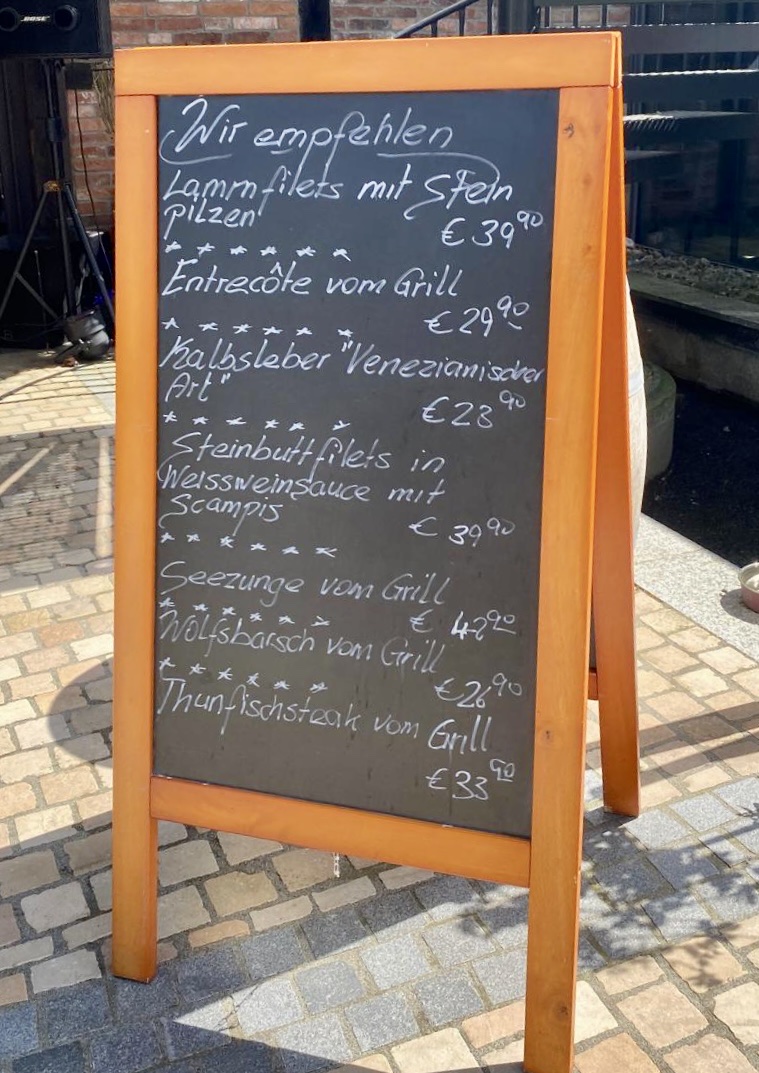 BOSE
Wir empfehlen
Lammfilets mit Stein
pilzen
€ 39⁹⁰
* * * * * *
Entrecôte vom Grill
€ 29⁹⁰
* * * * * *
Kalbsleber "Venezianischer
Art"
€ 23⁹⁰
* * * * * *
Steinbuttfilets in
Weissweinsauce mit
Scampis
€ 39⁹⁰
* * * * * *
Seezunge vom Grill
€ 42⁹⁰
* * * * * *
Wolfsbarsch vom Grill
€ 26⁹⁰
* * * * * *
Thunfischsteak vom Grill
€ 33⁹⁰